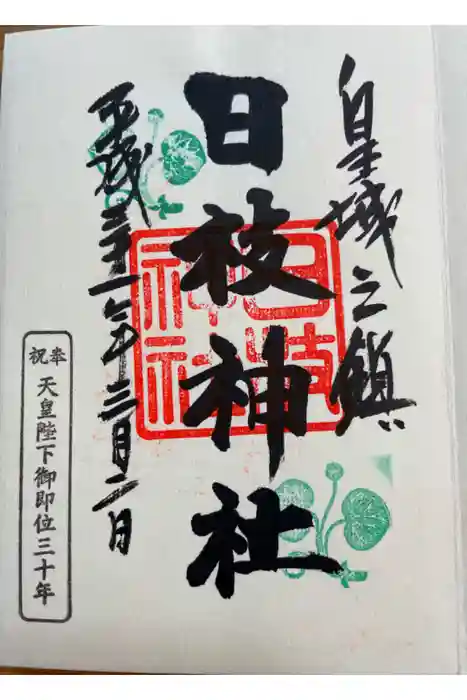 皇城之鎮
日枝神社
日枝神社
平成三十一年三月二日
奉祝
天皇陛下御即位三十年